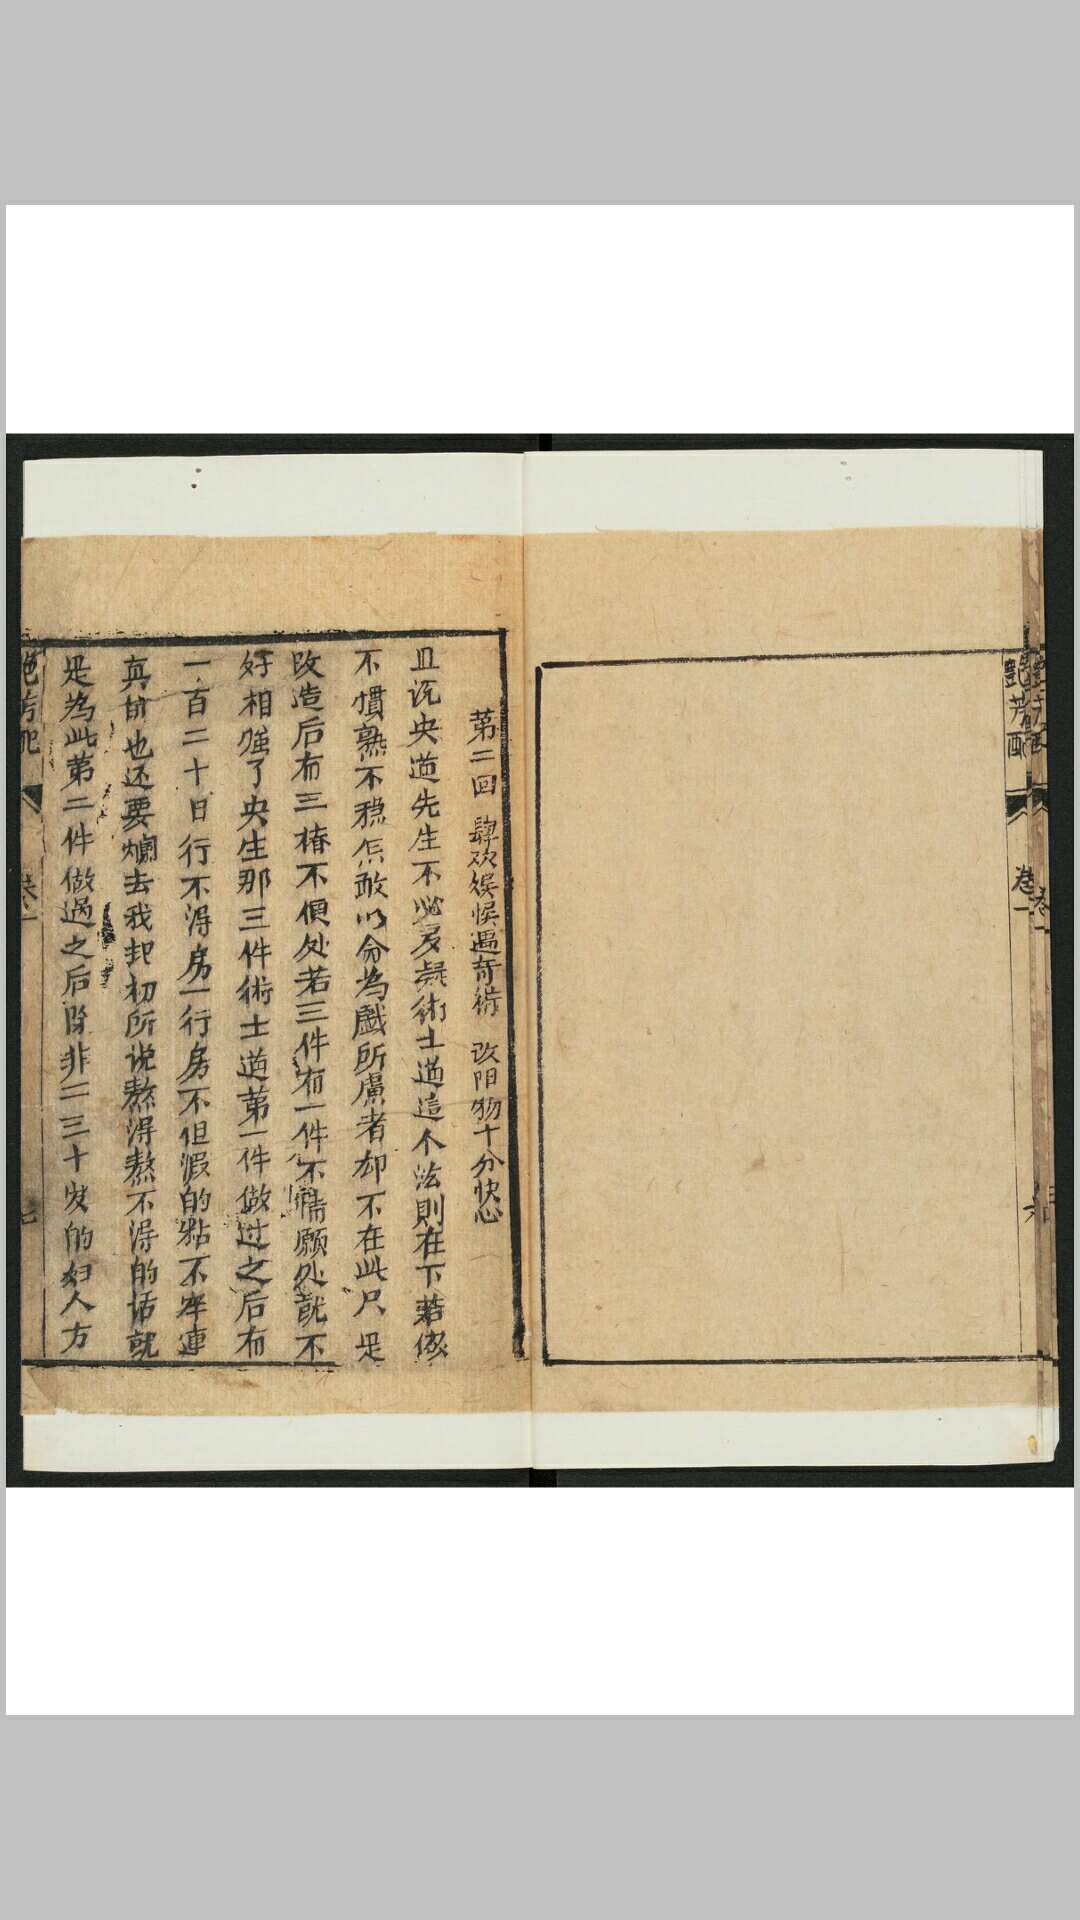 艷芳配
卷一
六
第二回 肆欢娱悞遇奇術 改阳物十分快心
且说央道先生不必反疑術士道這个法則在下若傢
不慣熟不稳怎敢以命為戲所慮者却不在此只是
改造后布三椿不便处若三件有一件不情願处就不
好相强了央生那三件術士道第一件做过之后布
一百二十日行不得房一行房不但假的粘不牢連
真的也还要爛去我起初所说熬得熬不得的话就
是為此第二件做過之后除非二三十岁的妇人方
艳芳配
卷一
七